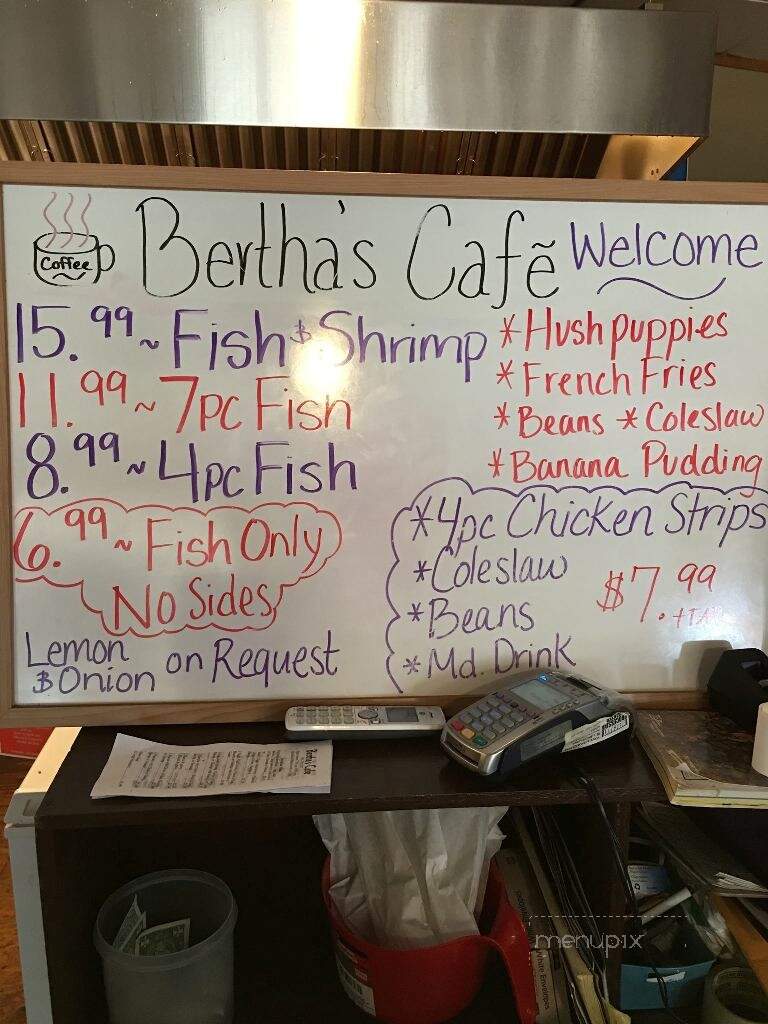 Coffee
Bertha's Cafẽ
Welcome
15.99 ~ Fish & Shrimp
11.99 ~ 7pc Fish
8.99 ~ 4pc Fish
6.99 ~ Fish Only
No Sides
Lemon
& Onion on Request
* Hushpuppies
* French Fries
* Beans * Coleslaw
* Banana Pudding
* 4pc Chicken Strips
* Coleslaw
* Beans
* Md. Drink
$7.99
+TAX
Bertha's Café
White Envelopes
menupix